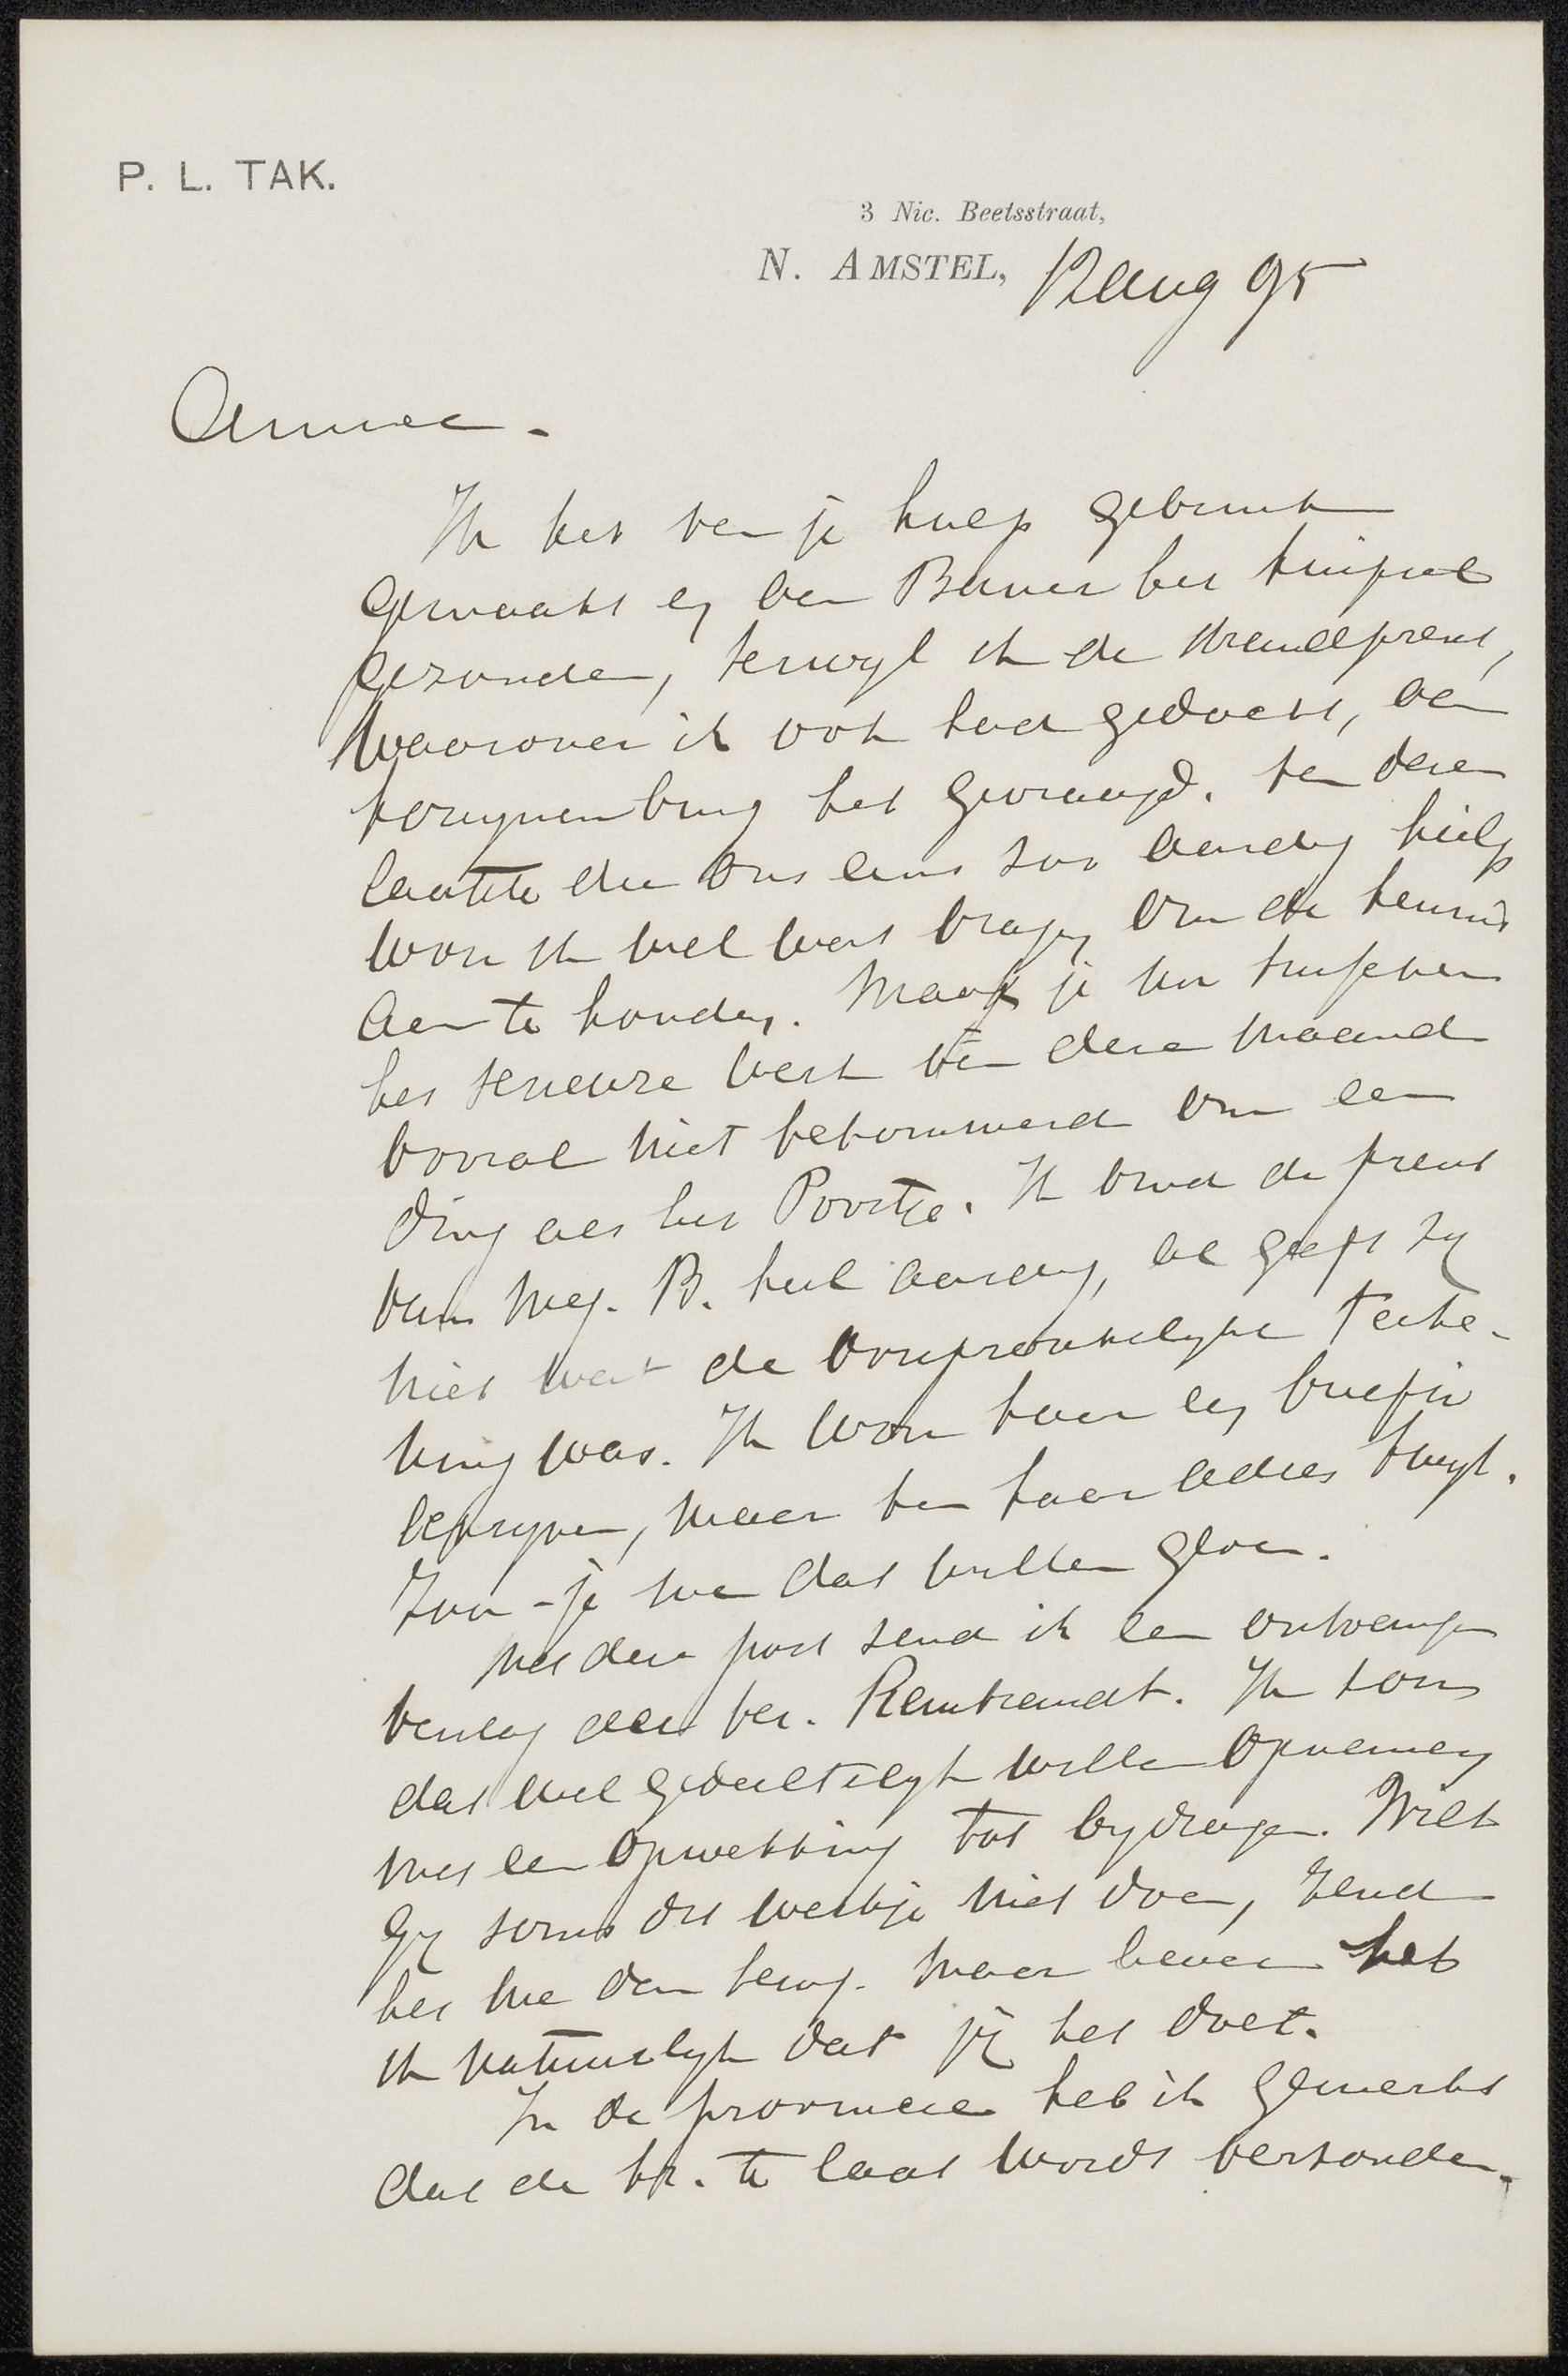 P. L. TAK.
3 Nic. Beetsstraat,
N. AMSTEL, 12 Aug 95
Amice.
Ik heb van je hulp gebruik
gemaakt en aan Bauer het knipsel
gezonden, terwyl ik de
waarover ik ook had gedacht, aan
heb gevraagd. Van deze
laatste die ons eens zoo aardig hielp
wou ik wel wat vragen om de kennis
aan te houden. Maak je nu tusschen
het serieuze werk van deze maand
vooral niet bekommerd om een
ding als het Poortje. Ik vind de prent
van mej. B. heel aardig, al geeft zy
niet wat de oorspronkelyke teeke-
ning was. Ik wou haar en briefje
schryven, maar ben haar adres kwyt.
Zou-je me dat willen geven.
Met deze post zend ik een ontvangen
verslag der ver. Rembrandt. Ik zou
dat wel gedeeltelyk willen opnemen
met een opwekking tot bydragen. Wilt
gy soms dit werkje niet doen, zend
het me dan terug. Maar liever heb
ik natuurlyk dat jy het doet.
In de provincie heb ik gemerkt
dat de kr. te laat wordt verzonden.